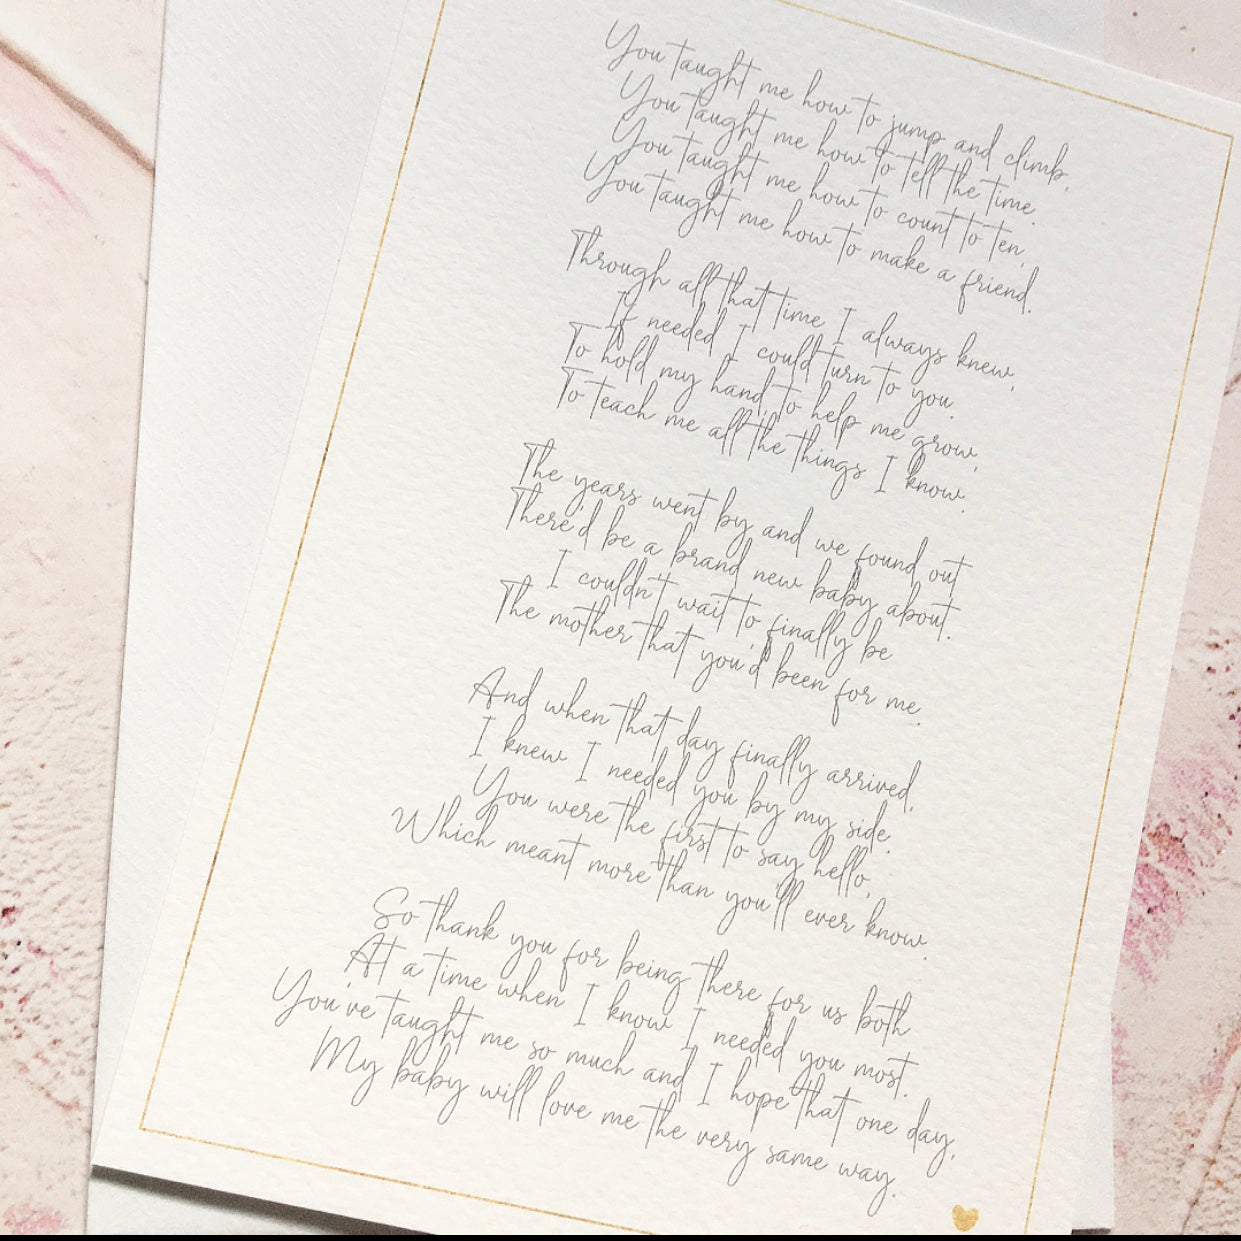 You taught me how to jump and climb,
You taught me how to tell the time.
You taught me how to count to ten,
You taught me how to make a friend.
Through all that time I always knew,
If needed I could turn to you.
To hold my hand, to help me grow,
To teach me all the things I know.
The years went by and we found out
There'd be a brand new baby about.
I couldn't wait to finally be
The mother that you'd been for me.
And when that day finally arrived,
I knew I needed you by my side.
You were the first to say hello,
Which meant more than you'll ever know.
So thank you for being there for us both
At a time when I know I needed you most.
You've taught me so much and I hope that one day,
My baby will love me the very same way.